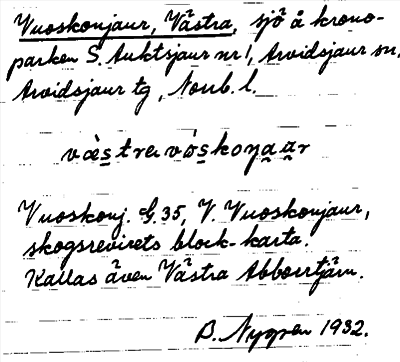 Vuoskonjaur, Västra, sjö å krono-
parken S. Auktsjaur nr 1, Arvidsjaur sn,
Arvidsjaur tg, Norrb. l.
Vuoskonj. G. 35, V. Vuoskonjaur,
skogsrevirets block-karta.
Kallas även Västra Abborrtjärn.
B. Nygren 1932.